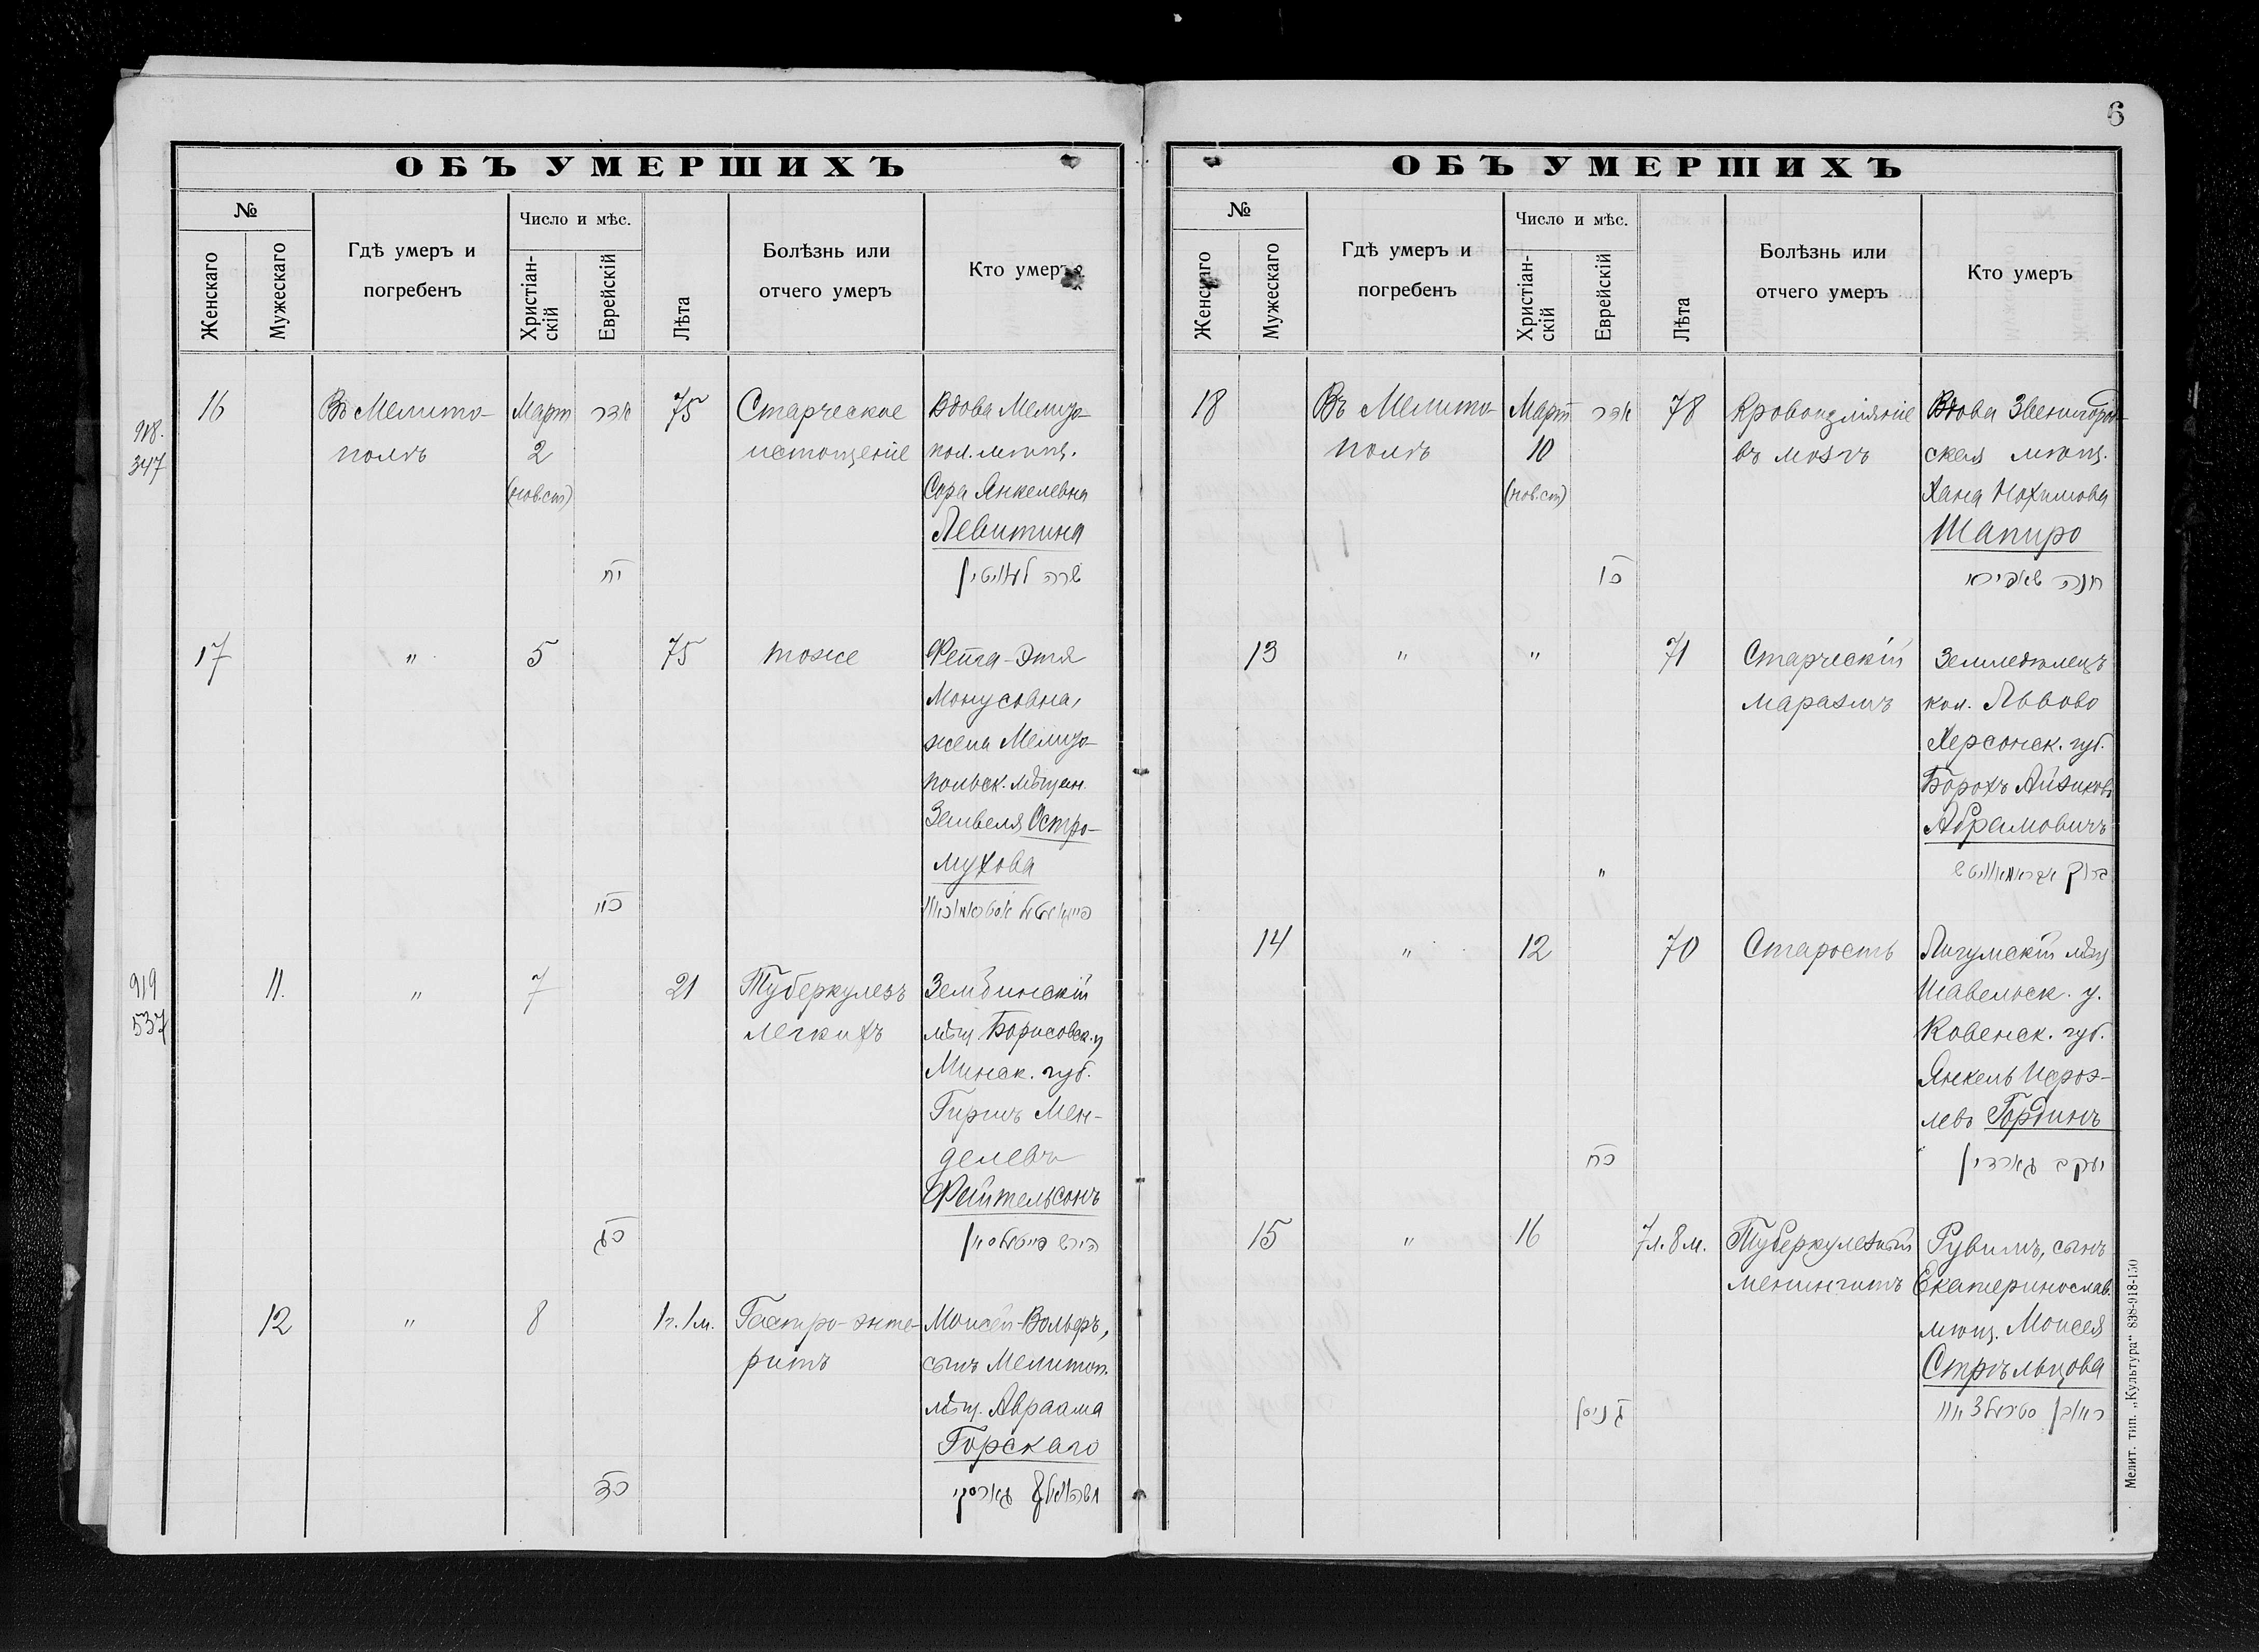 6
ОБЪ УМЕРШИХЪ
№
Женскаго
Мужескаго
Гдѣ умеръ и
погребенъ
Число и мѣс.
Христіан-
скій
Еврейскій
Лѣта
Болѣзнь или
отчего умеръ
Кто умеръ
918.
347
16
Въ Мелито-
полѣ
Март
2
(нов.ст)
אדר
יח
75
Старческое
истощеніе
Вдова Мелито-
пол. мѣщ.
Сора Янкелевна
Левитина
שרה לעוויטין
17
"
5
75
тоже
Фейга-Этя
Монусовна,
жена Мелито-
польск. мѣщан.
Зельвеля Остро-
мухова
919
537
11.
"
7
כג
21
Туберкулезъ
легкихъ
Зембинскій
мѣщ. Борисовск. у
Минск. губ.
Гиршъ Мен-
делевъ
Фейтельсонъ
הירש פייטעלסון
12
"
8
כד
1 г. 1 м.
Гастро-энте-
ритъ
Моисей-Вольфъ,
сынъ Мелитоп.
мѣщ. Авраама
Горскаго
גארסקי
ОБЪ УМЕРШИХЪ
№
Женскаго
Мужескаго
Гдѣ умеръ и
погребенъ
Число и мѣс.
Христіан-
скій
Еврейскій
Лѣта
Болѣзнь или
отчего умеръ
Кто умеръ
18
Въ Мелито-
полѣ
Март
10
(нов.ст)
אדר
כו
78
Кровоизліяніе
въ мозгъ
Вдова Звенигород-
ская мѣщ.
Хана Нохимова
Шапиро
חנה שאפירא
13
"
"
"
71
Старческій
маразмъ
Земледѣлецъ
кол. Львово
Херсонск. губ.
Борохъ Айзиковъ
Абрамовичъ
ברוך אבראמאוויטש
14
"
12
כח
70
Старость
Лигумскій мѣщ
Шавельск. у.
Ковенск. губ.
Янкель Исроэ-
левъ Гординъ
יעקב גארדין
15
"
16
ג ניסן
7 л. 8 м.
Туберкулезный
менингитъ
Рувимъ, сынъ
Екатеринослав.
мѣщ. Моисея
Стрѣльцова
ראובן סטרעלצאוו
Мелит. тип. „Культура“ 838-918-150